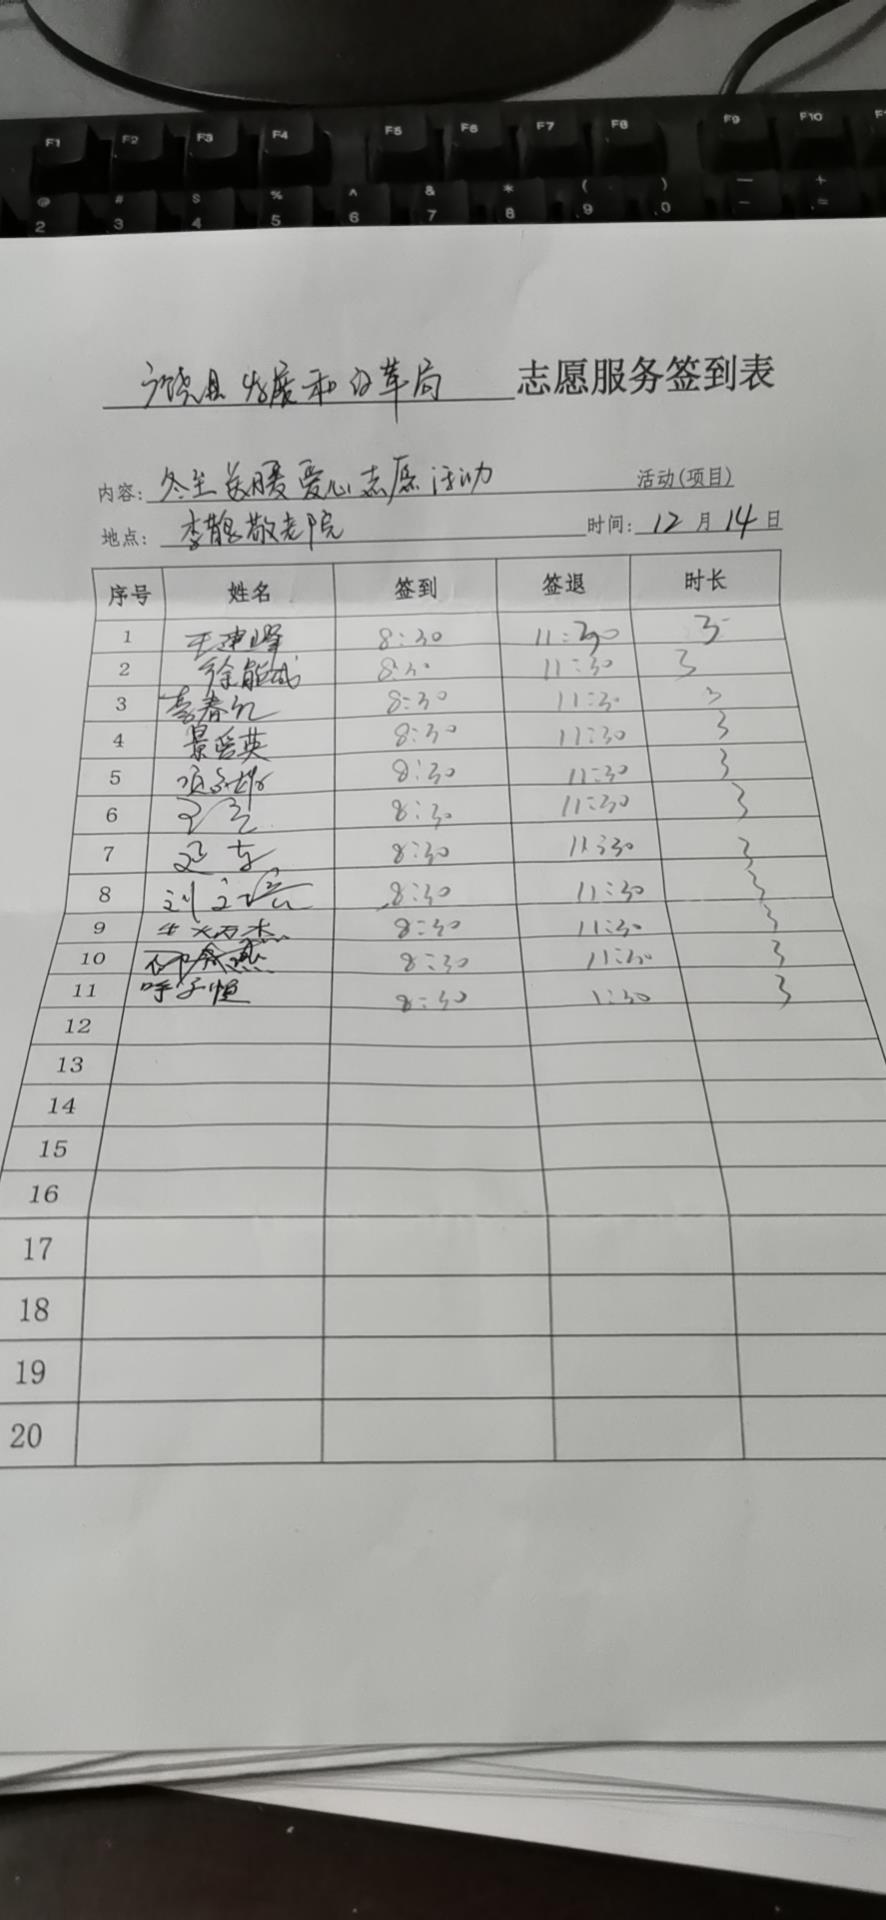 F1 F2 F3 F4 F5 F6 F7 F8 F9 F10
@ # $ % ^ & * ( ) — +
2 3 4 5 6 7 8 9 0 - =
广饶县发展和改革局 志愿服务签到表
内容: 冬至送暖爱心志愿活动 活动(项目)
地点: 李鹊敬老院 时间: 12 月 14 日
序号 姓名 签到 签退 时长
1 王建峰 8:30 11:30 3
2 徐能武 8:30 11:30 3
3 8:30 11:30 3
4 景爱英 8:30 11:30 3
5 8:30 11:30 3
6 8:30 11:30 3
7 8:30 11:30 3
8 8:30 11:30 3
9 8:30 11:30 3
10 8:30 11:30 3
11 呼子恒 8:30 1:30 3
12
13
14
15
16
17
18
19
20